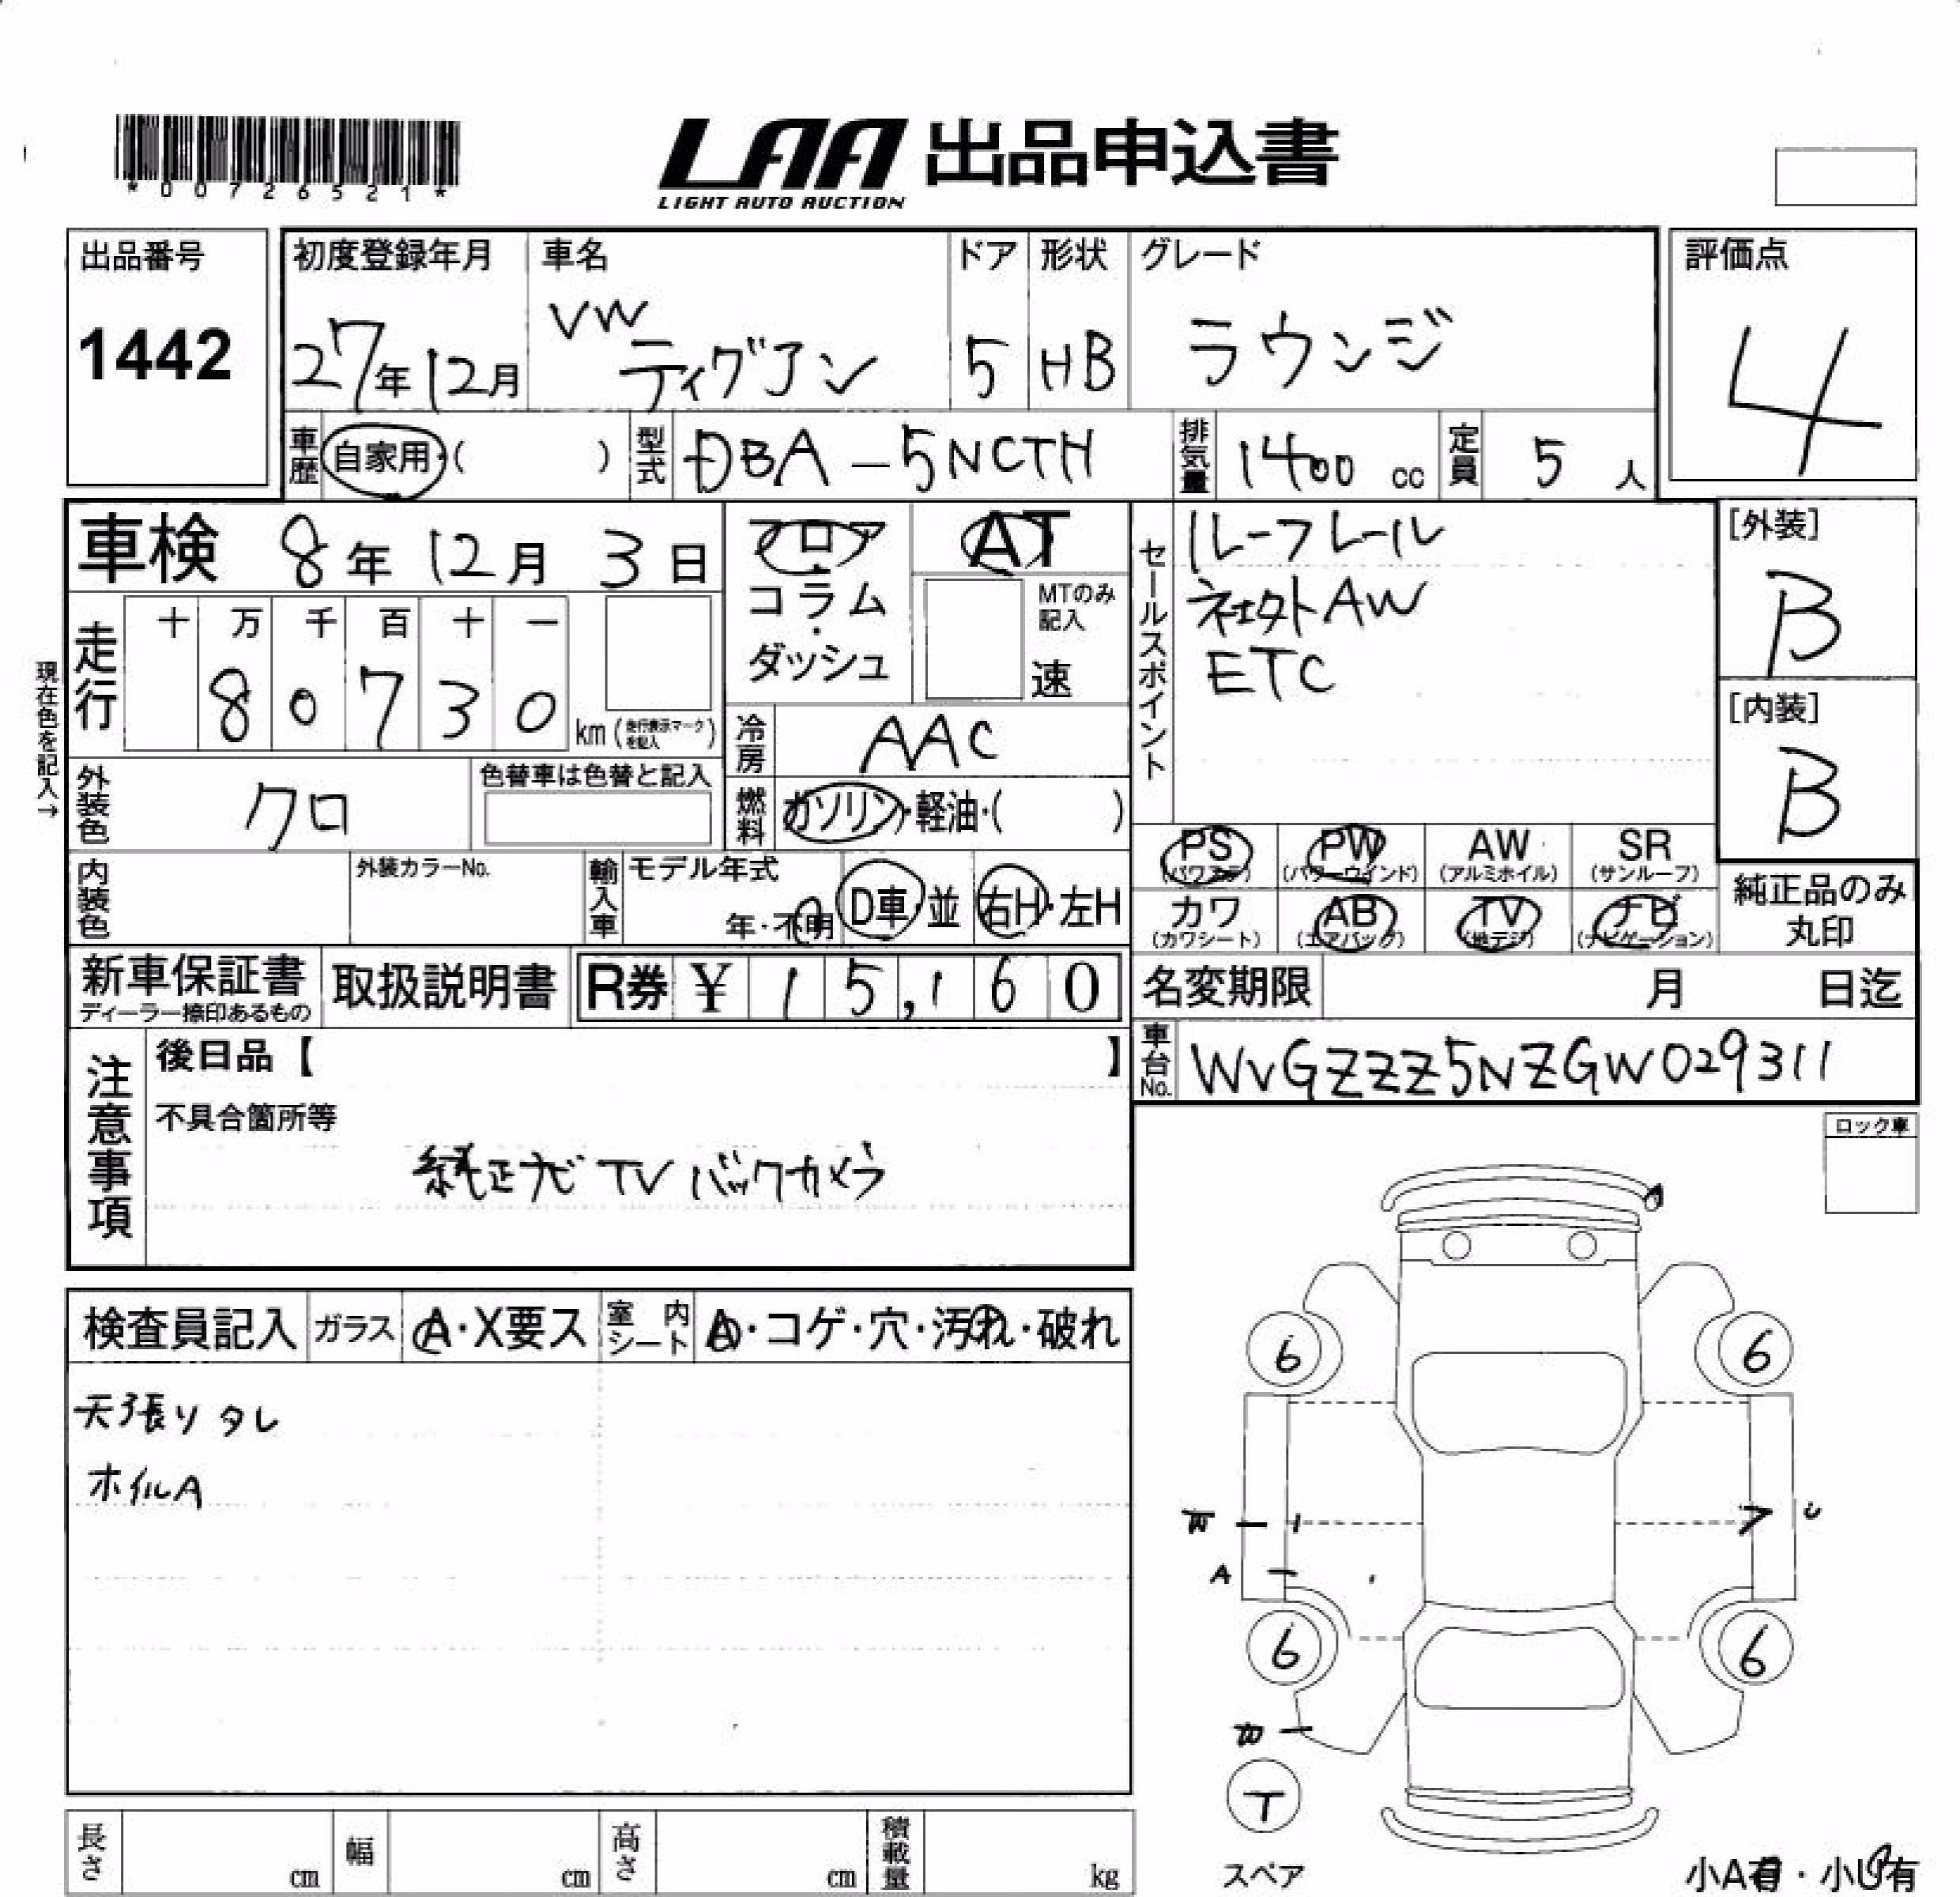 *00726521*
LAA 出品申込書
LIGHT AUTO AUCTION
出品番号
1442
初度登録年月
27年12月
車名
VW
ティグアン
ドア
5
形状
HB
グレード
ラウンジ
評価点
4
車歴
自家用・( )
型式
DBA-5NCTH
排気量
1400 cc
定員
5 人
車検 8年 12月 3日
現在色を記入→
走行
十 万 千 百 十 一
8 0 7 3 0
km (走行表示マークを記入)
フロア・コラム・ダッシュ
AT
MTのみ記入
速
冷房
AAC
燃料
ガソリン・軽油・( )
セールスポイント
ルーフレール
社外AW
ETC
[外装]
B
[内装]
B
外装色
クロ
色替車は色替と記入
内装色
外装カラーNo.
輸入車
モデル年式
年・不明
D車・並
右H・左H
PS
(パワステ)
PW
(パワーウインド)
AW
(アルミホイル)
SR
(サンルーフ)
カワ
(カワシート)
AB
(エアバッグ)
TV
(地デジ)
ナビ
(ナビゲーション)
純正品のみ
丸印
新車保証書
ディーラー捺印あるもの
取扱説明書
R券 ¥ 15,160
名変期限 月 日迄
車台No.
WVGZZZ5NZGW029311
注意事項
後日品【 】
不具合箇所等
純正ナビ TV バックカメラ
ロック車
検査員記入
ガラス
A・X要ス
室内シート
A・コゲ・穴・汚れ・破れ
天張りタレ
ホイルA
6
6
A
U
6
6
T
スペア
長さ cm
幅 cm
高さ cm
積載量 kg
小A有・小U有